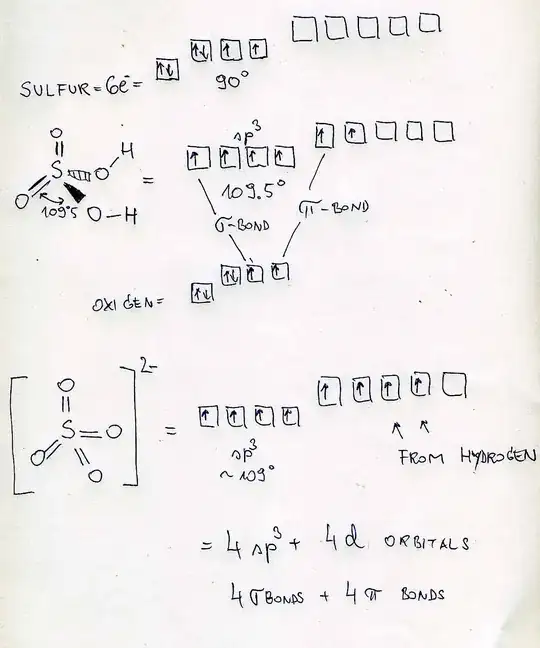 SULFUR = 6e⁻ =
90°
O
S
O
H
O
O-H
109°5
=
sp³
109.5°
σ-BOND
π-BOND
OXIGEN =
2-
O
S
O
O
O
=
sp³
~109°
FROM HYDROGEN
= 4 sp³ + 4d ORBITALS
4 σ BONDS + 4 π BONDS